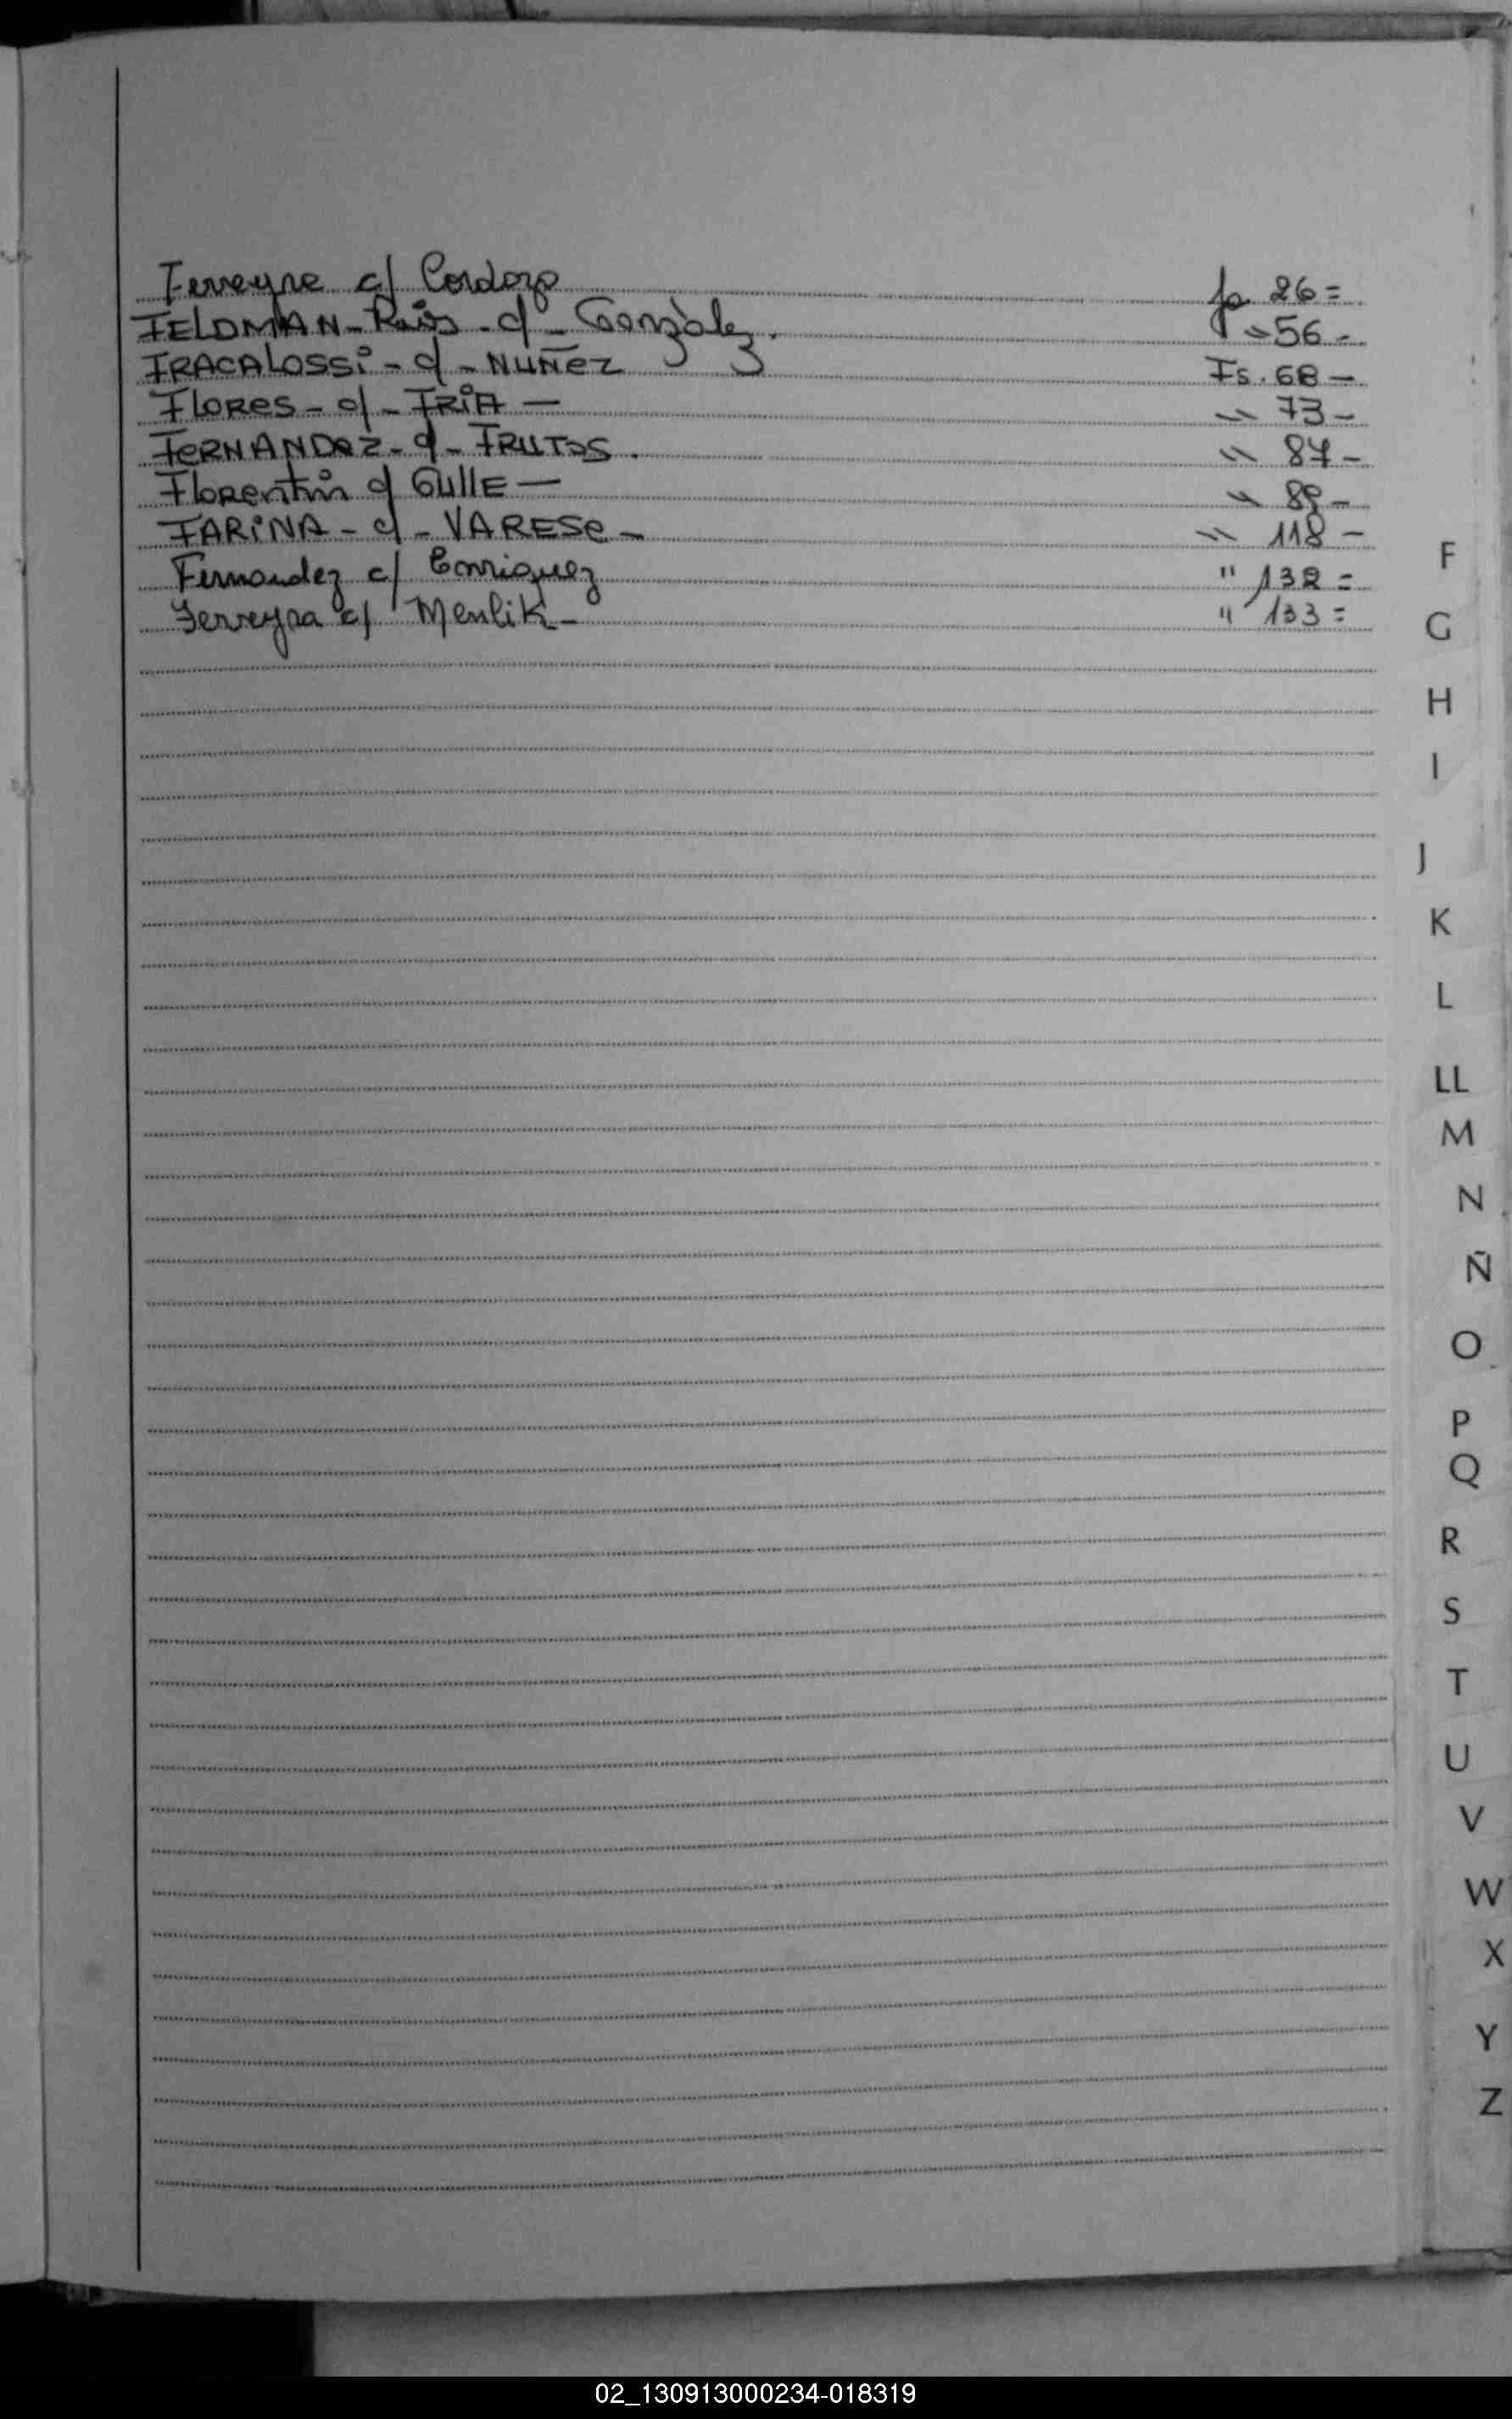 Ferreyra c/ Cordozo fs 26=
FELDMAN-Ruis-c/-Gonzàlez. " 56-
FRACALOSSi-c/-NUÑEZ Fs. 68-
FLORES-c/-FRiA- " 73-
FERNANDEZ-c/-FRUTOS. " 87-
Florentin c/ GUllE- " 89-
FARiNA-c/-VARESE- " 118-
Fernandez c/ Enriquez " 132=
Ferreyra c/ Menlik- " 133=
F
G
H
I
J
K
L
LL
M
N
Ñ
O
P
Q
R
S
T
U
V
W
X
Y
Z
02_130913000234-018319